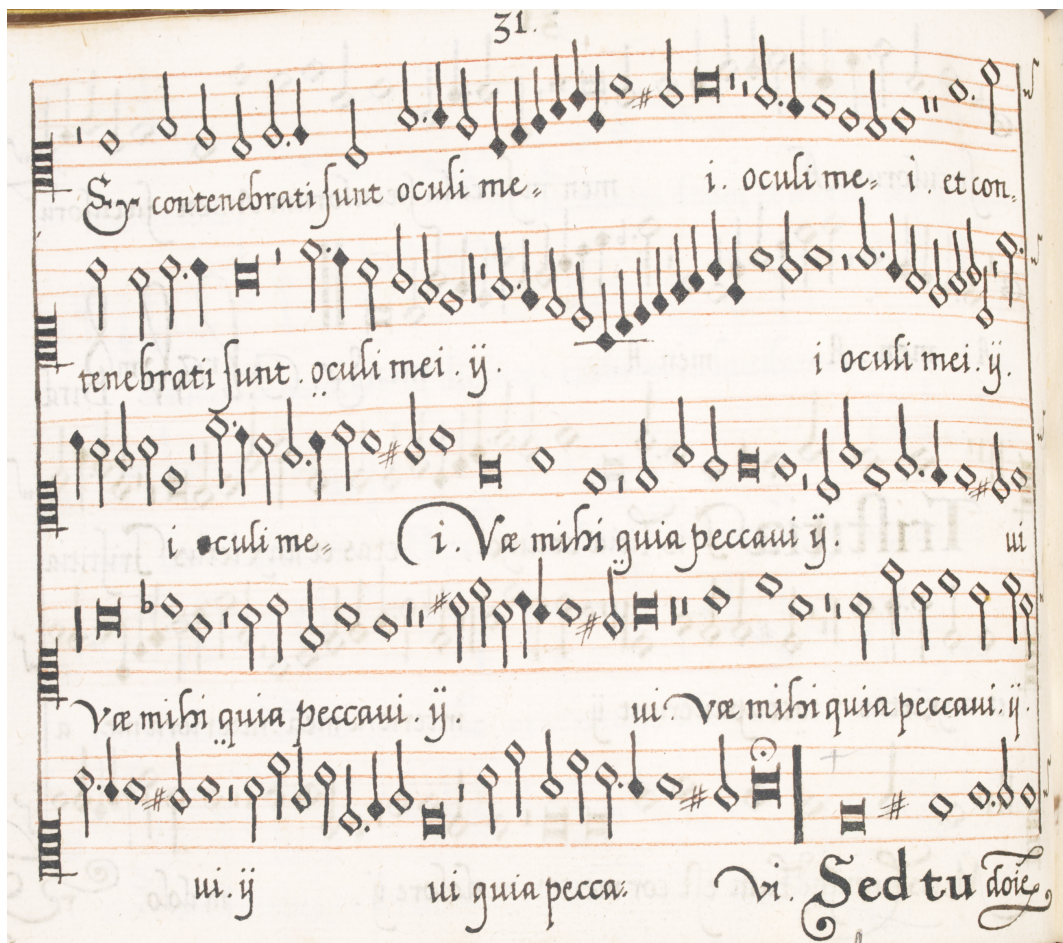 31.
Et contenebrati sunt oculi me- i. oculi me- i. et con-
tenebrati sunt. oculi mei. ij. i oculi mei. ij.
i oculi me- i. Væ mihi quia peccaui ij. ui
Væ mihi quia peccaui. ij. ui væ mihi quia peccaui. ij.
ui. ij ui quia pecca. vi. Sed tu dōie